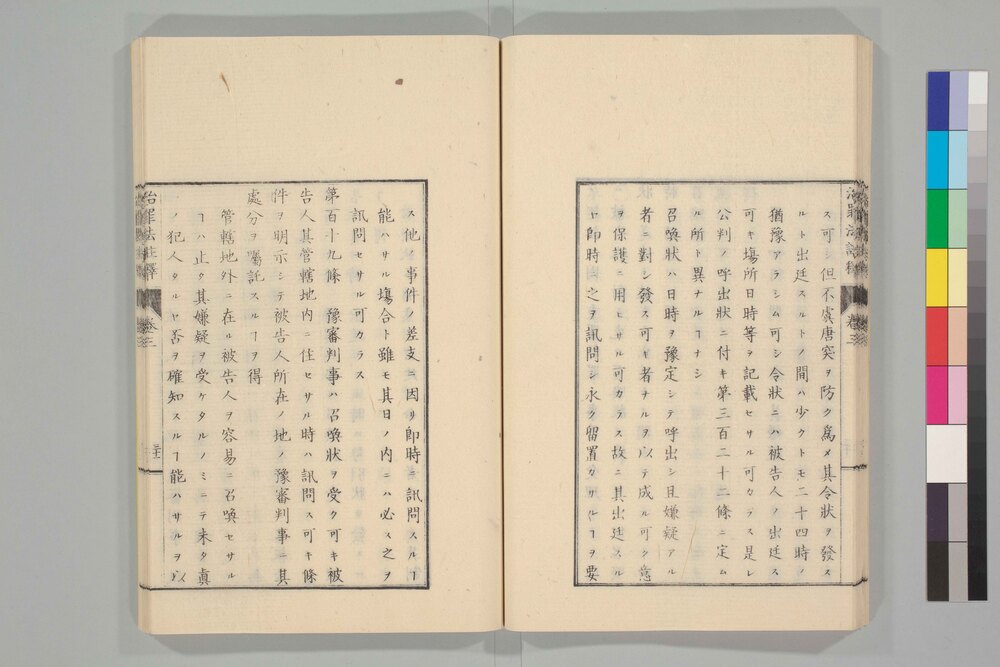 ス可シ但不虞唐突ヲ防ク爲メ其令狀ヲ發ス
ルト出廷スルトノ間ハ少クトモ二十四時ノ
猶豫アラシム可シ令狀ニハ被告人ノ出廷ス
可キ塲所日時等ヲ記載セサル可カラス是レ
公判ノ呼出狀ニ付キ第三百二十二條ニ定ム
ル所ト異ナルヿナシ
召喚狀ハ日時ヲ豫定シテ呼出シ且嫌疑アル
者ニ對シ發ス可キ者ナルヲ以テ成ル可ク意
ヲ保護ニ用ヒサル可カラス故ニ其出廷スル
ヤ卽時ニ之ヲ訊問シ永ク留置カサルヿヲ要
ス他ノ事件ノ差支ニ因リ卽時ニ訊問スルヿ
能ハサル塲合ト雖モ其日ノ内ニハ必ス之ヲ
訊問セサル可カラス
第百十九條 豫審判事ハ召喚狀ヲ受ク可キ被
告人其管轄地内ニ住セサル時ハ訊問ス可キ條
件ヲ明示シテ被告人所在ノ地ノ豫審判事ニ其
處分ヲ囑託スルヿヲ得
管轄地外ニ在ル被告人ヲ容易ニ召喚セサル
ヿハ止タ其嫌疑ヲ受ケタルノミニテ未タ眞
ノ犯人タルヤ否ヲ確知スルヿ能ハサルヲ以
治罪法註釋 卷三